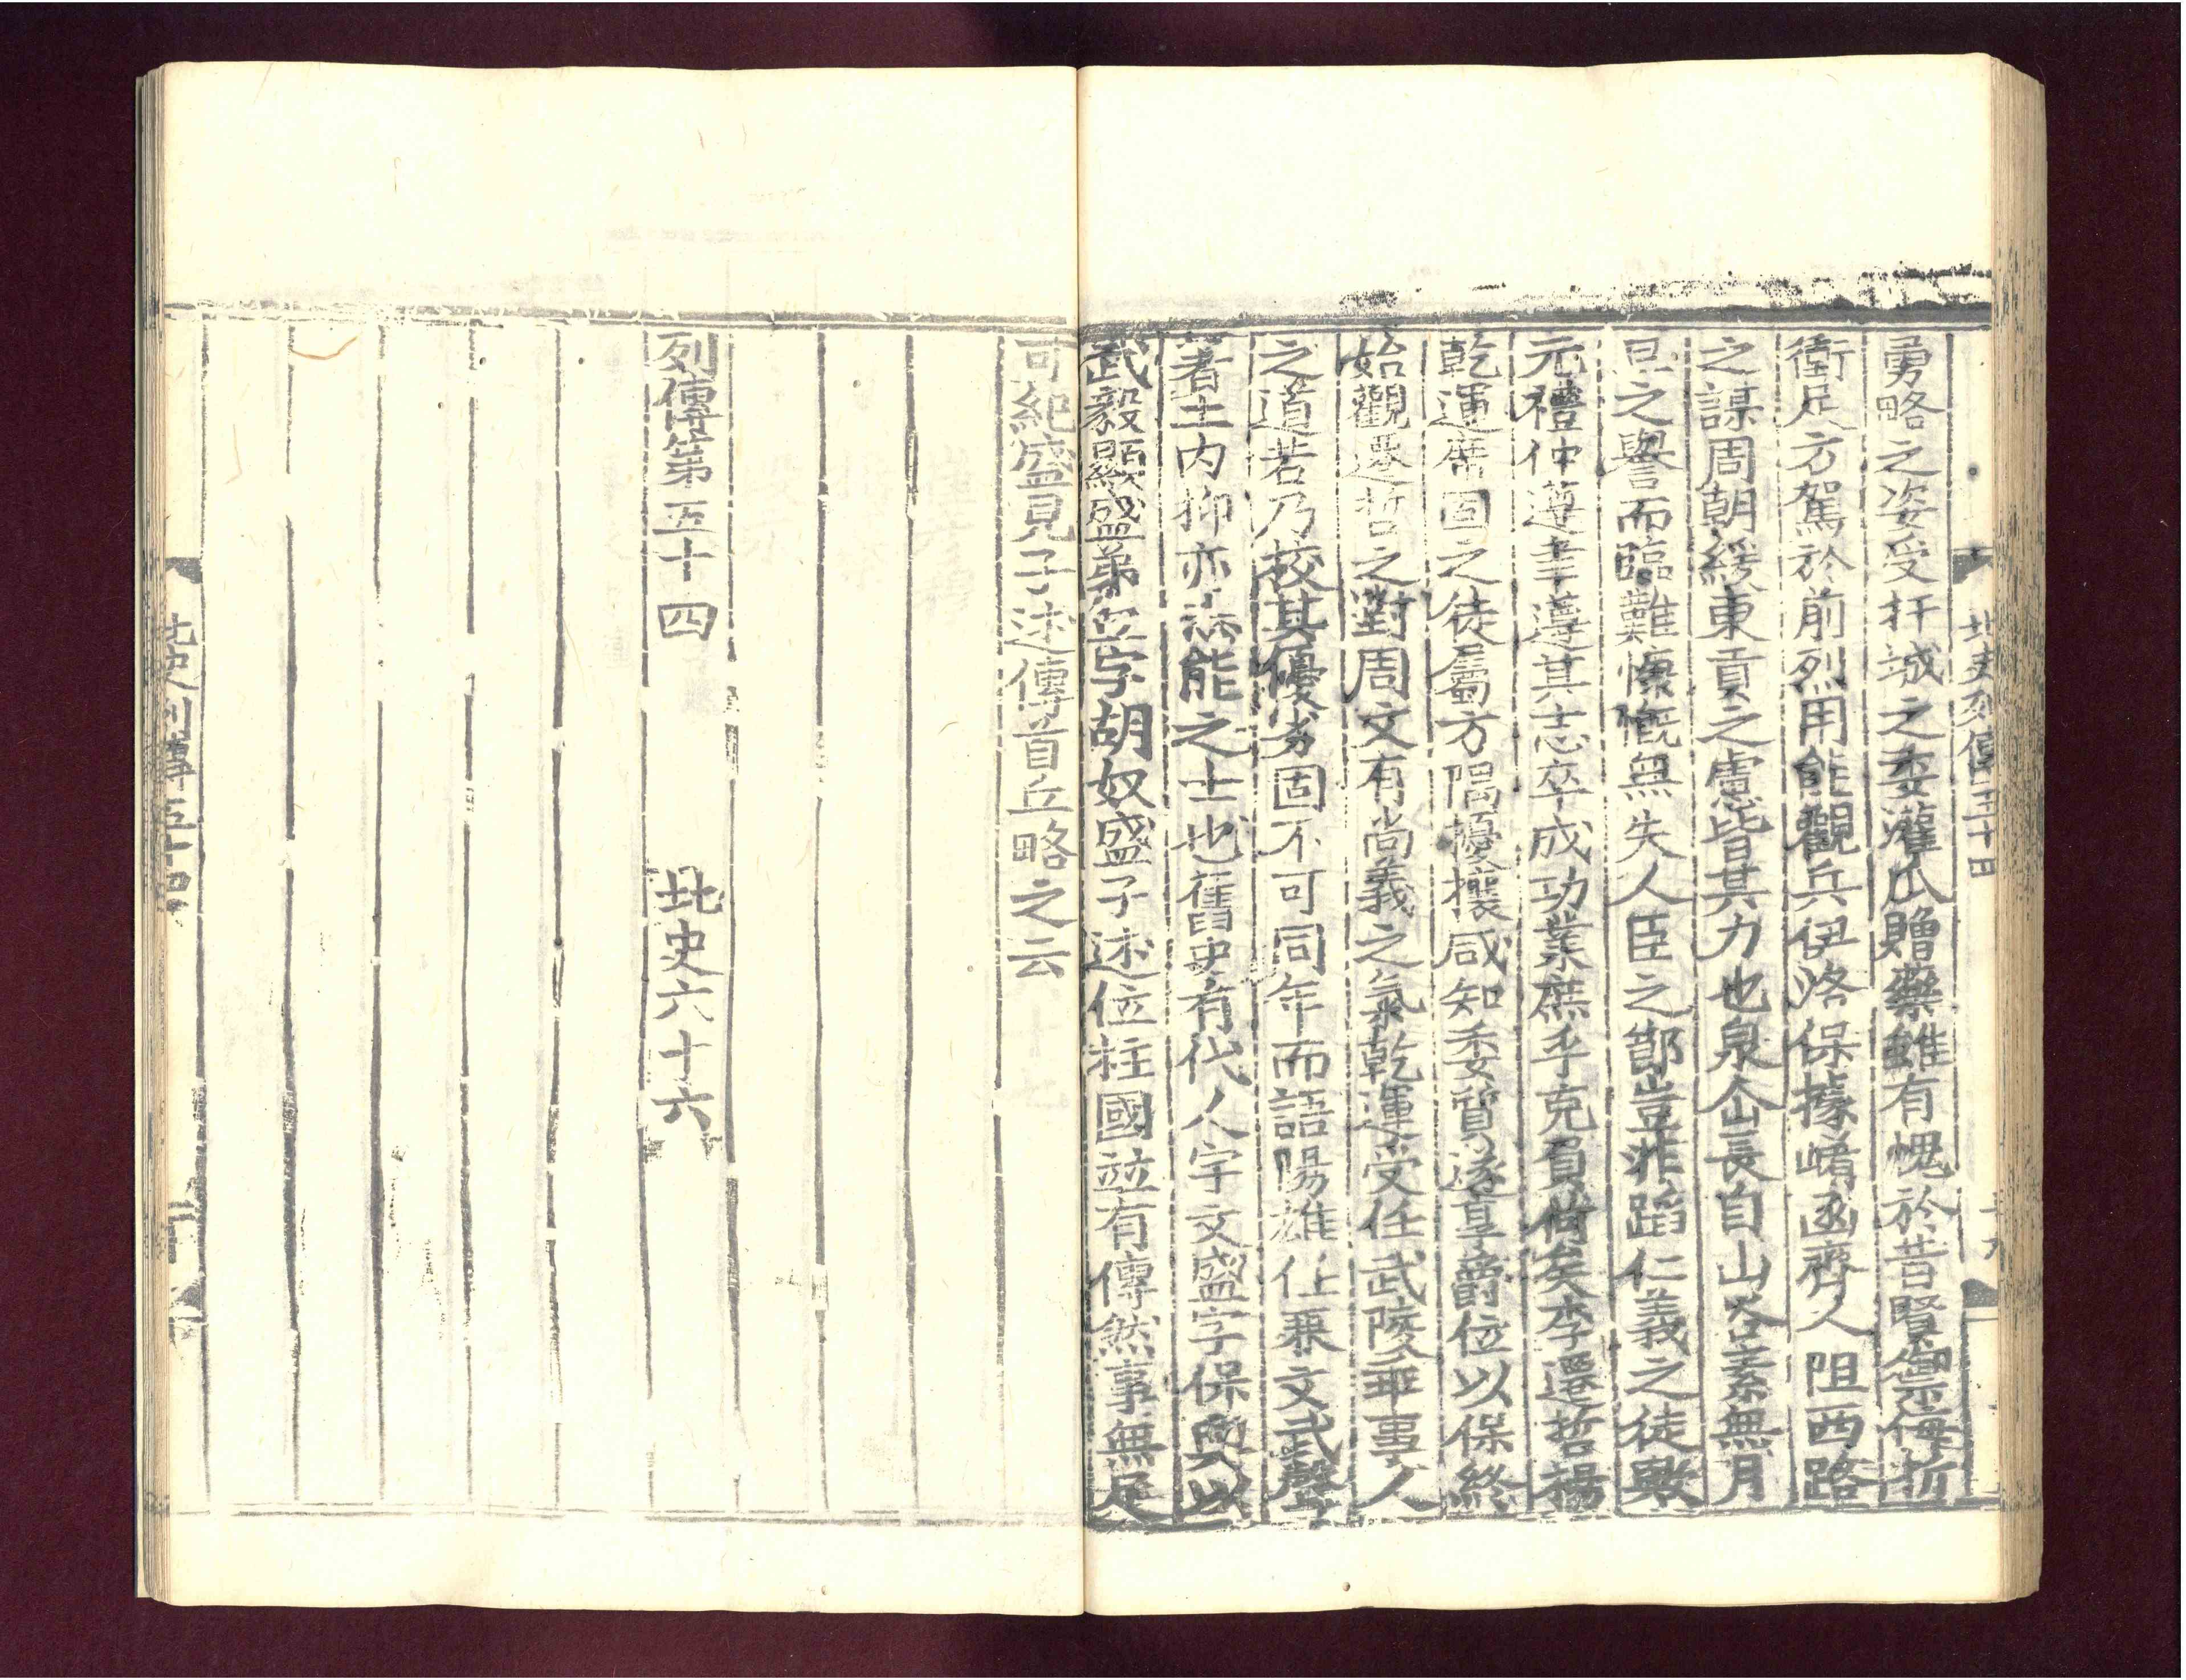 勇略之姿受扞城之委灌瓜贈藥雖有愧於昔賢禦侮折
衝足方駕於前烈用能觀兵伊洛保據崤函齊人阻西路
之謀周朝緩東貢之慮皆其力也泉仚山長自山谷素無月
旦之譽而臨難慷慨無失人臣之節豈非蹈仁義之徒歟
元禮仲遵聿遵其志卒成功業庶乎克負荷矣李遷哲楊
乾運席固之徒屬方隅擾攘咸知委質遂享爵位以保終
始觀遷哲之對周文有尚義之氣乾運受任武陵乖事人
之道若乃校其優劣固不可同年而語陽雄任兼文武聲
著士內抑亦志能之士也舊史有代人宇文盛字保興以
武毅顯盛弟丘字胡奴盛子述位柱國並有傳然事無足
可紀盛見子述傳首丘略之云
列傳第五十四　北史六十六
北史列傳五十四
北史列傳五十四